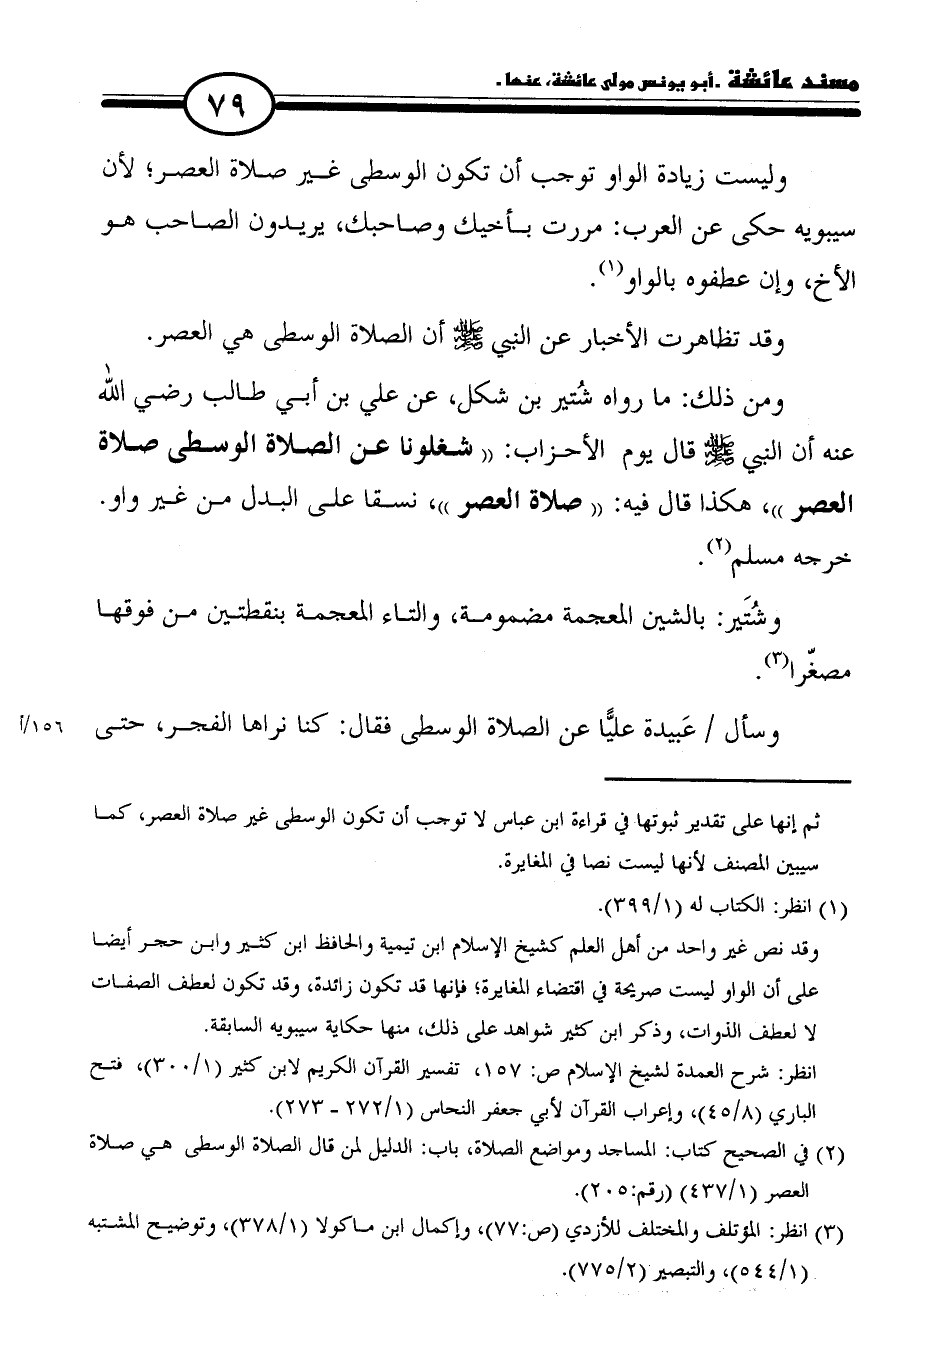 مسند عائشة ـ أبو يونس مولى عائشة، عنها ـ
٧٩
وليست زيادة الواو توجب أن تكون الوسطى غير صلاة العصر؛ لأن
سيبويه حكى عن العرب: مررت بأخيك وصاحبك، يريدون الصاحب هو
الأخ، وإن عطفوه بالواو(١).
وقد تظاهرت الأخبار عن النبي ﷺ أن الصلاة الوسطى هي العصر.
ومن ذلك: ما رواه شُتير بن شكل، عن علي بن أبي طالب رضي الله
عنه أن النبي ﷺ قال يوم الأحزاب: (( شغلونا عن الصلاة الوسطى صلاة
العصر ))، هكذا قال فيه: (( صلاة العصر ))، نسقا على البدل من غير واو.
خرجه مسلم(٢).
وشُتَير: بالشين المعجمة مضمومة، والتاء المعجمة بنقطتين من فوقها
مصغّرا(٣).
وسأل / عَبيدة عليًّا عن الصلاة الوسطى فقال: كنا نراها الفجر، حتى
١٥٦/أ
ثم إنها على تقدير ثبوتها في قراءة ابن عباس لا توجب أن تكون الوسطى غير صلاة العصر، كما
سيبين المصنف لأنها ليست نصا في المغايرة.
(١) انظر: الكتاب له (٣٩٩/١).
وقد نص غير واحد من أهل العلم كشيخ الإسلام ابن تيمية والحافظ ابن كثير وابن حجر أيضا
على أن الواو ليست صريحة في اقتضاء المغايرة؛ فإنها قد تكون زائدة، وقد تكون لعطف الصفات
لا لعطف الذوات، وذكر ابن كثير شواهد على ذلك، منها حكاية سيبويه السابقة.
انظر: شرح العمدة لشيخ الإسلام ص: ١٥٧، تفسير القرآن الكريم لابن كثير (٣٠٠/١)، فتح
الباري (٤٥/٨)، وإعراب القرآن لأبي جعفر النحاس (٢٧٢/١ - ٢٧٣).
(٢) في الصحيح كتاب: المساجد ومواضع الصلاة، باب: الدليل لمن قال الصلاة الوسطى هي صلاة
العصر (٤٣٧/١) (رقم:٢٠٥).
(٣) انظر: المؤتلف والمختلف للأزدي (ص:٧٧)، وإكمال ابن ماكولا (٣٧٨/١)، وتوضيح المشتبه
(٥٤٤/١)، والتبصير (٧٧٥/٢).